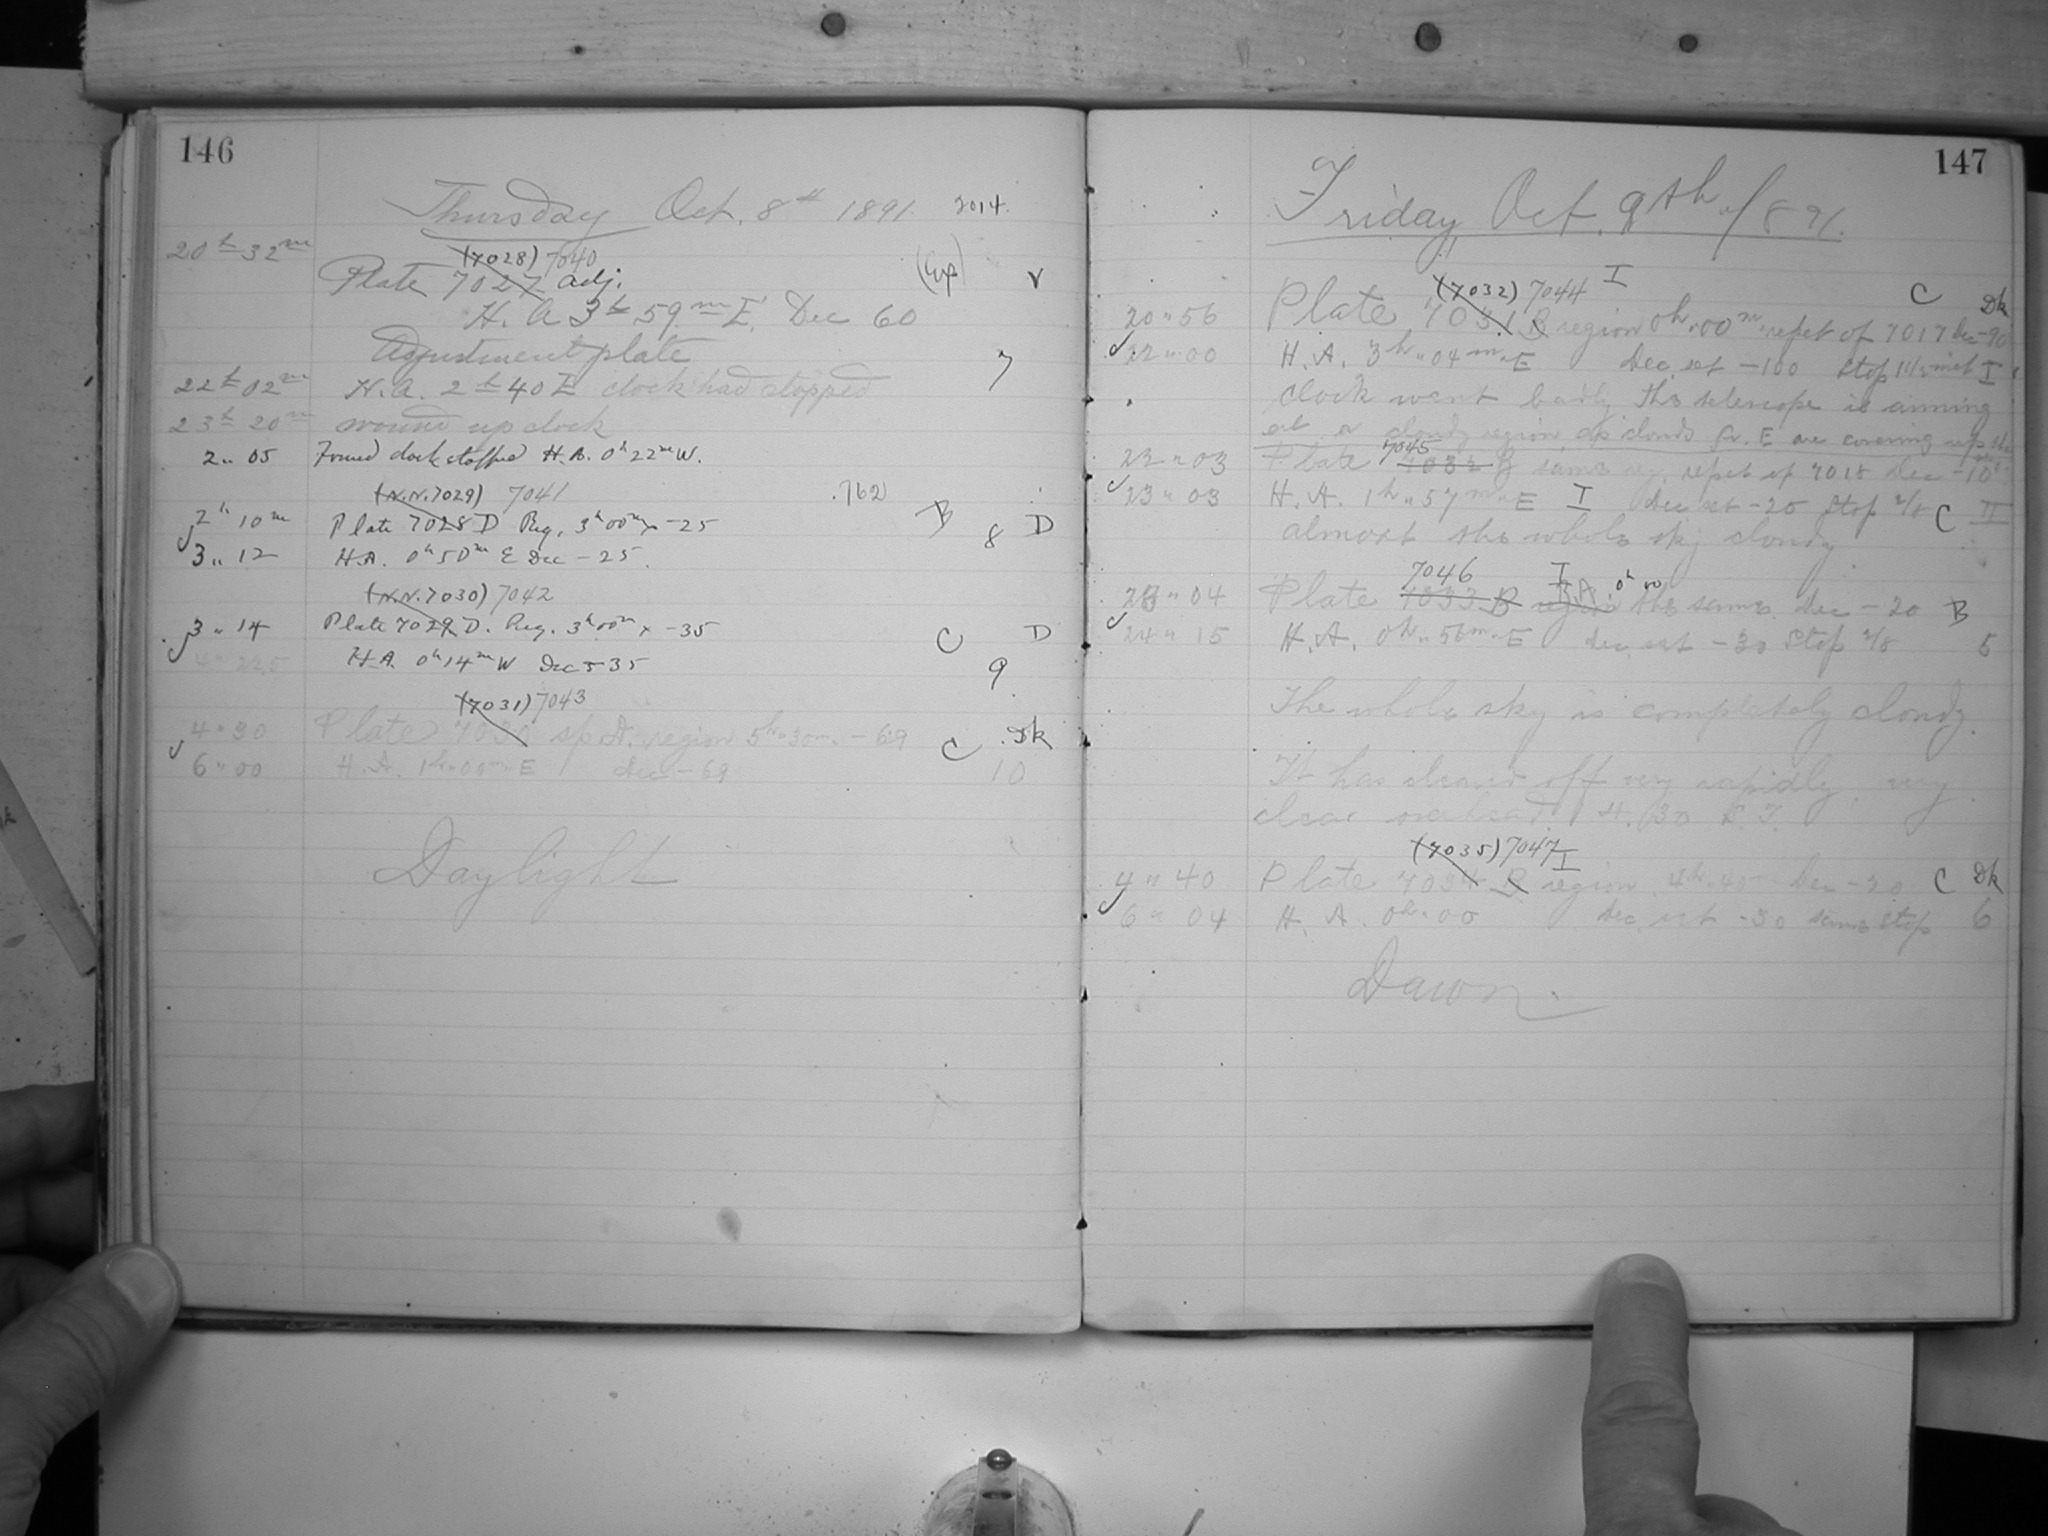 146
Thursday Oct. 8th 1891. 2014.
20h 32m (7028) 7040
Plate 7027 adj. (Exp) v
H. A 3h 59m E. Dec 60
Adjustment plate 7
22h 02m H. A. 2h 40 E clock had stopped
23h 20m wound up clock
2 " 05 Found clock stopped H.A. 0h 22m W.
(N.N. 7029) 7041 .762
2h 10m Plate 7028 D Reg. 3h 00m x -25 B 8 D
3 " 12 H.A. 0h 50m E Dec -25.
(N.N. 7030) 7042
3 " 14 Plate 7029 D. Reg. 3h 00m x -35 C D
4 " 22.5 H.A. 0h 14m W Dec -35 9
(7031) 7043
4 " 30 Plate 7030 sp D. region 5h " 30m. -69 C Dk
6 " 00 H. A. 1h " 00m " E Dec -69 10
Daylight
147
Friday Oct. 9th " / 891.
(7032) 7044 I C Dk
20 " 56 Plate 7031 B region 0h " 00m. repet of 7017 Dec -90
22 " 00 H. A. 3h " 04m " E Dec. set -100 Stop I
clock went badly the telescope is aiming
at a cloudy region as clouds fr. E are covering up the
7045
22 " 03 Plate 7032 B same reg. repet of 7018 Dec -10
23 " 03 H. A. 1h " 57m " E I Dec set -20 Stop 2/8 C II
almost the whole sky cloudy
7046 I 0h 00
23 " 04 Plate 7033 B region R.A. the same Dec -20 B
24 " 15 H. A. 0h " 56m " E dec. set -30 Stop 2/8 5
The whole sky is completely cloudy.
It has cleared off very rapidly, very
clear overhead 4. 30 S. T.
(7035) 7047 I
4 " 40 Plate 7034 B region 4h " 40m Dec -20 C Dk
6 " 04 H. A. 0h " 00 Dec set -30 same Stop 6
Dawn.